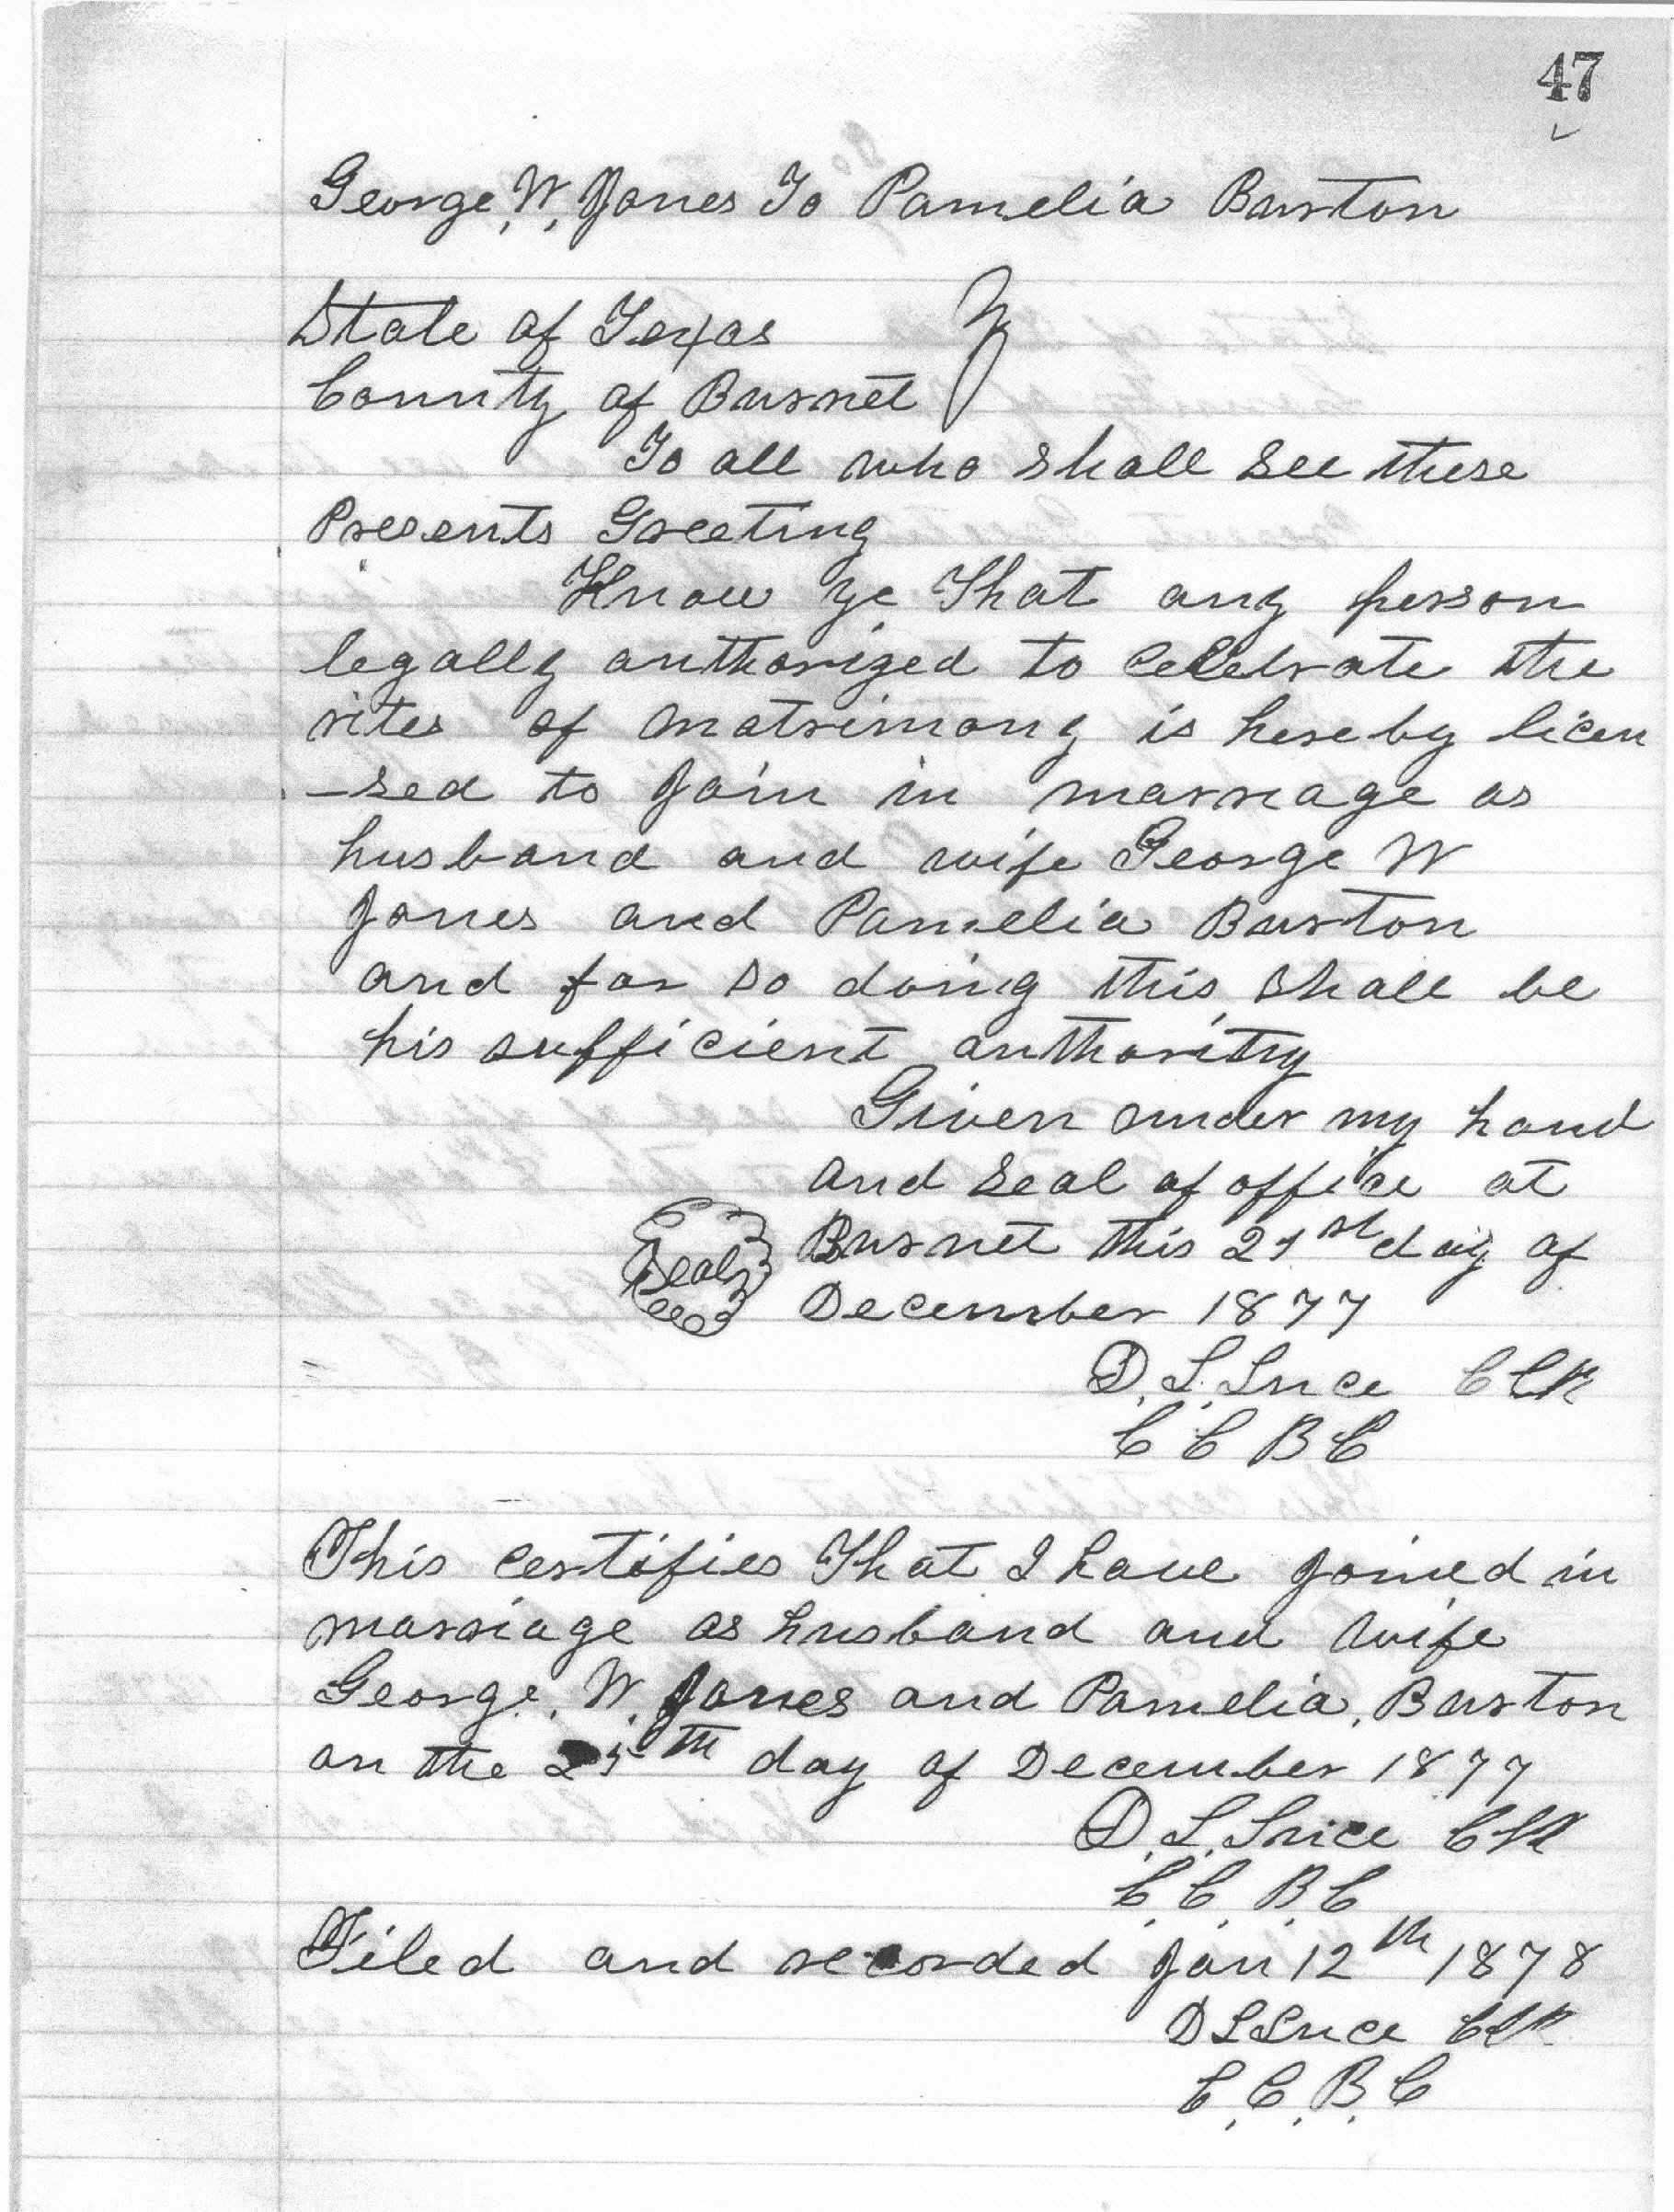 47
George, W, Jones To Pamelia Burton
State of Texas
County of Burnet
To all who shall see these
Presents Greeting
Know ye That any person
legally authorized to celebrate the
rites of matrimony is hereby licen
-sed to Join in marriage as
husband and wife George W
Jones and Pamelia Burton
and for so doing this shall be
his sufficient authority
Given under my hand
and seal of office at
Seal
Burnet this 21st day of
December 1877
D. L. Luce Clk
C C B C
This certifies That I have joined in
marriage as husband and wife
George, W. Jones and Pamelia, Burton
on the day of December 1877
D. L. Luce Clk
C. C. B. C
Filed and recorded Jan 12th 1878
D L Luce Clk
C, C, B, C